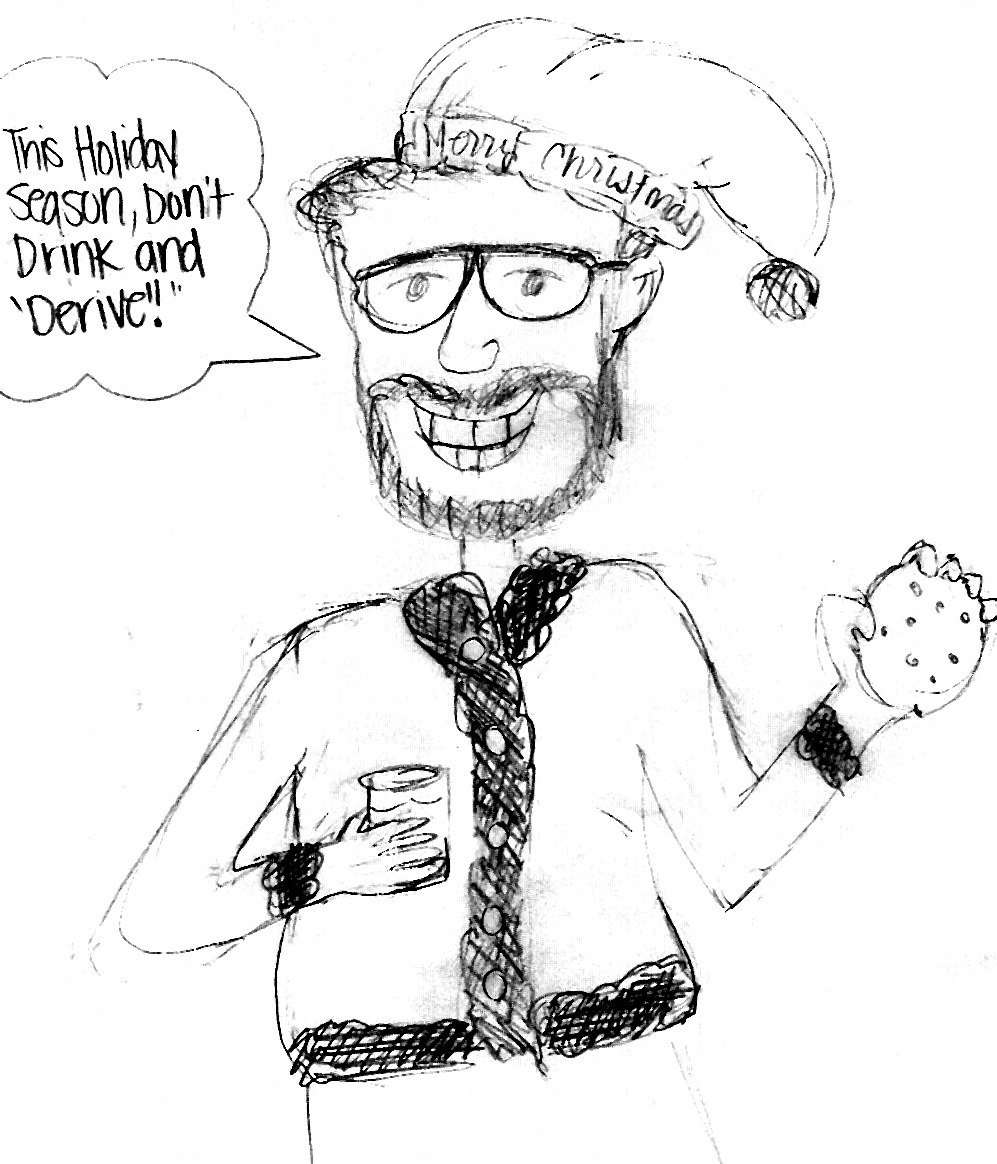 This Holiday
season, Don't
Drink and
"Derive!!"
Merry Christmas